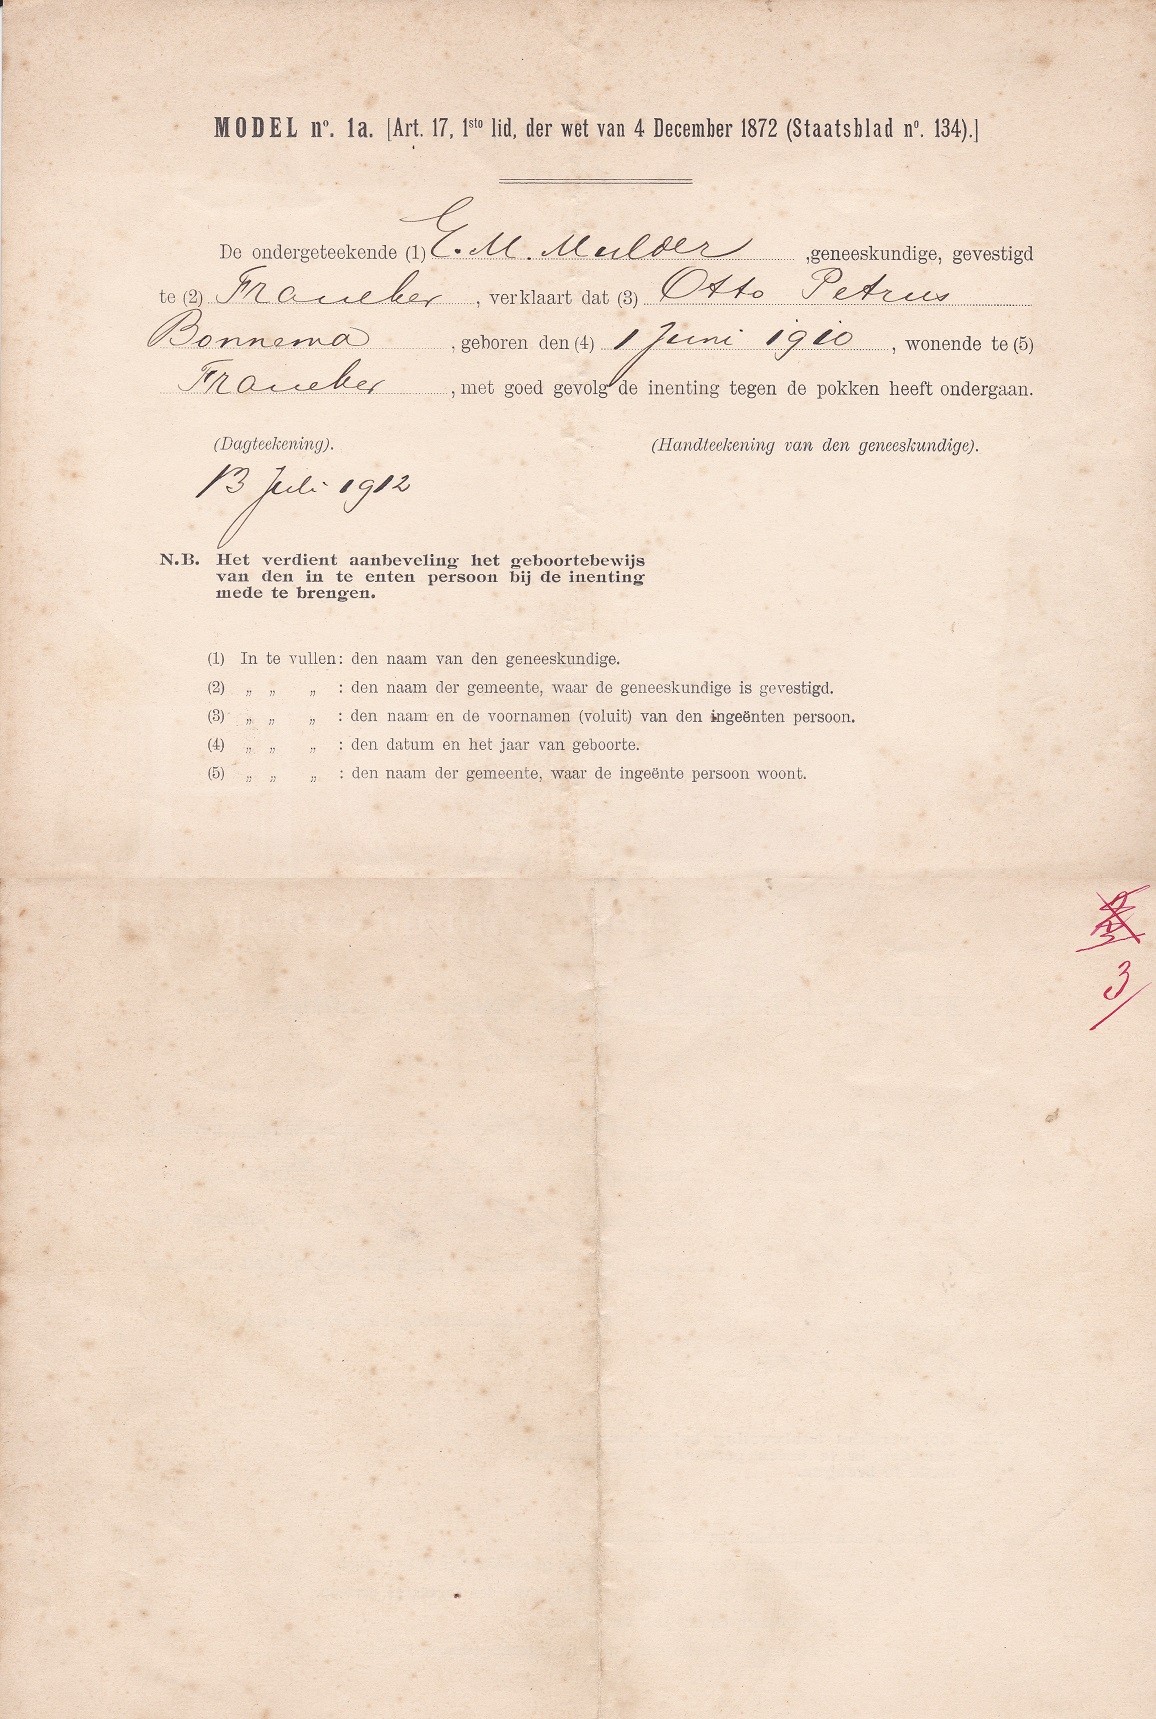 MODEL nº. 1a. [Art. 17, 1ste lid, der wet van 4 December 1872 (Staatsblad nº. 134).]
De ondergeteekende (1) E. M. Mulder, geneeskundige, gevestigd
te (2) Franeker, verklaart dat (3) Otto Petrus
Bonnema, geboren den (4) 1 Juni 1910, wonende te (5)
Franeker, met goed gevolg de inenting tegen de pokken heeft ondergaan.
(Dagteekening). (Handteekening van den geneeskundige).
13 Juli 1912
N.B. Het verdient aanbeveling het geboortebewijs
van den in te enten persoon bij de inenting
mede te brengen.
(1) In te vullen: den naam van den geneeskundige.
(2) „ „ „ : den naam der gemeente, waar de geneeskundige is gevestigd.
(3) „ „ „ : den naam en de voornamen (voluit) van den ingeënten persoon.
(4) „ „ „ : den datum en het jaar van geboorte.
(5) „ „ „ : den naam der gemeente, waar de ingeënte persoon woont.
3